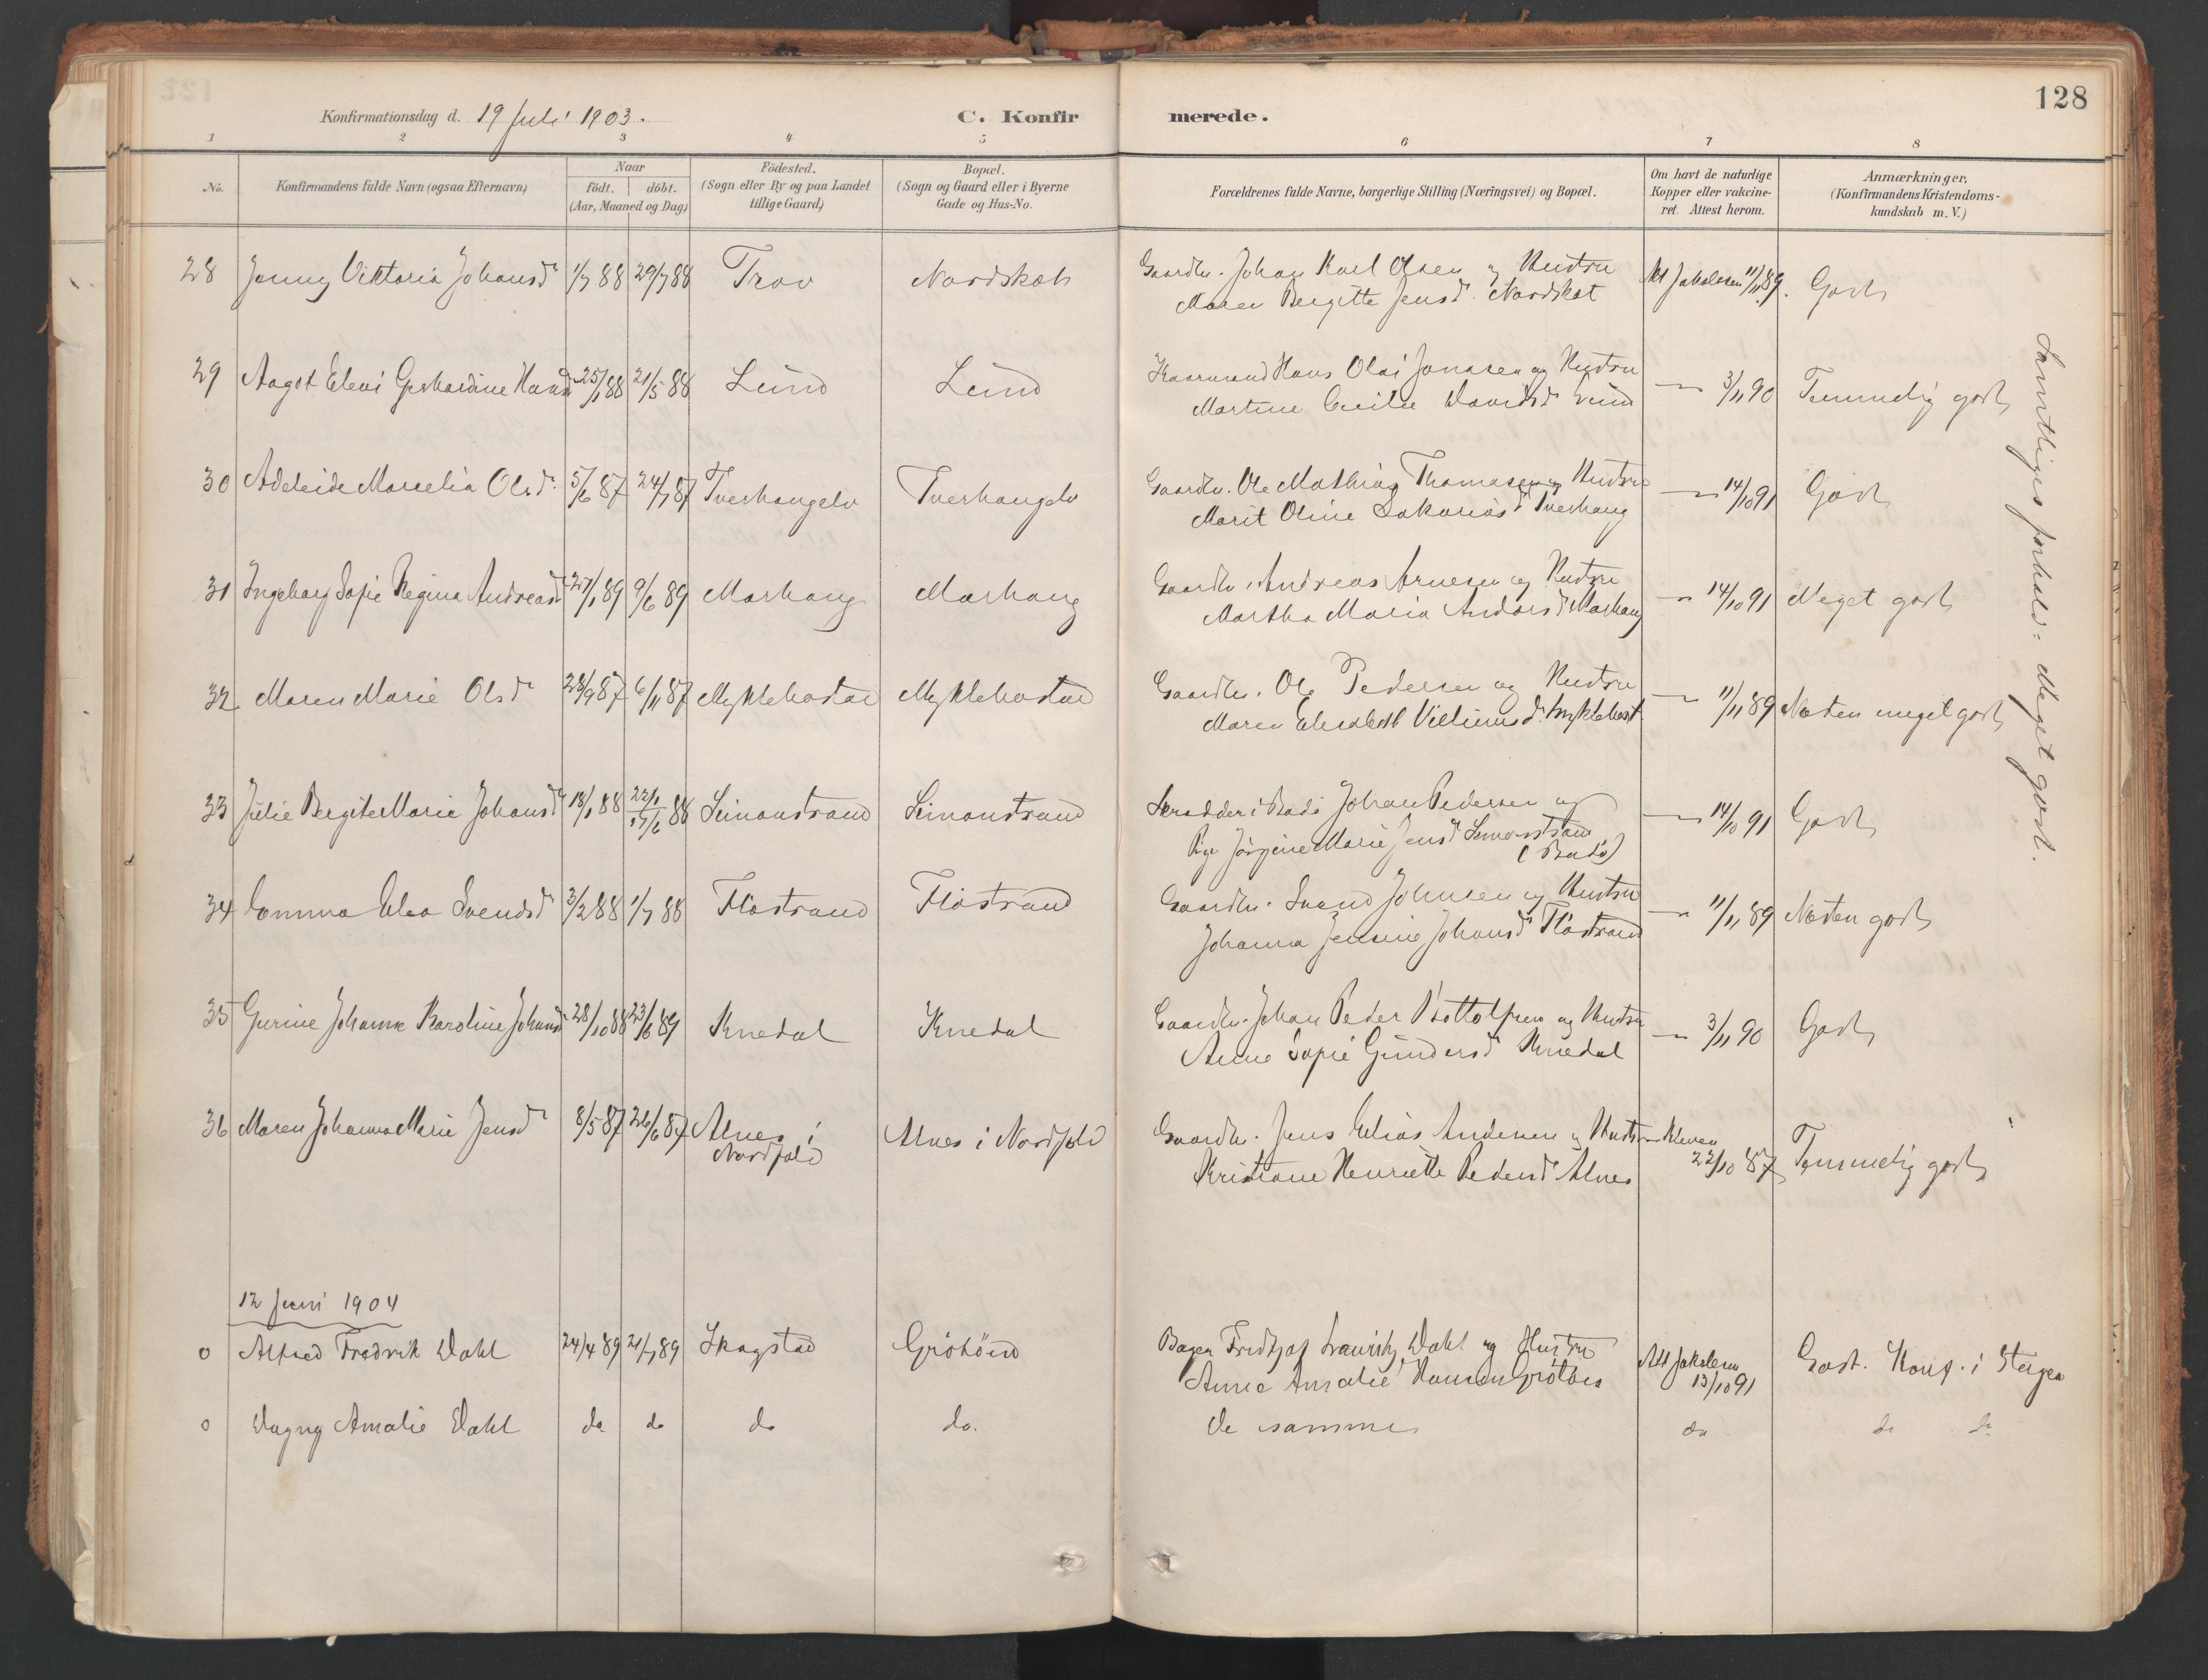 128
Konfirmationsdag d. 19 Juli 1903.
C. Konfirmerede.
1 2 3 4 5 6 7 8
No.
Konfirmandens fulde Navn (ogsaa Efternavn)
Naar
födt. döbt.
(Aar, Maaned og Dag)
Födested.
(Sogn eller By og paa Landet
tillige Gaard)
Bopæl.
(Sogn og Gaard eller i Byerne
Gade og Hus-No.
Forældrenes fulde Navne, borgerlige Stilling (Næringsvei) og Bopæl.
Om havt de naturlige
Kopper eller vakcine-
ret. Attest herom.
Anmærkninger,
(Konfirmandens Kristendoms-
kundskab m. V.)
28 Jenny Viktoria Johansd 1/7 88 29/7 88 Trov Nordskot Gaardbr. Johan Karl Olsen og Hustru
Maren Bergitte Jensd. Nordskot Jakobsen 11/11 89. Godt
29 Aagot Eleni Gerhardine Hansd 25/1 88 21/5 88 Lund Lund Kaarmand Hans Olai Jonasen og Hustru
Martine Cecilie Davidsd Lund — 3/11 90 Temmelig godt
30 Adeleide Marselia Olsd. 5/6 87 24/7 87 Tverhangelv Tverhangelv Gaardbr. Ole Mathias Thomasen og Hustru
Marit Oline Sakariasd Tverhaug — 14/10 91 Godt
31 Ingeborg Sofie Regina Andreasd 27/1 89 9/6 89 Markaug Markaug Gaardbr. Andreas Arnesen og Hustru
Martha Maria Andorsd Markaug — 14/10 91 Meget godt
32. Maren Marie Olsd 28/9 87 6/11 87 Myklebostad Myklebostad Gaardbr. Ole Pedersen og Hustru
Maren Elisabeth Villiumsd. Myklebost — 11/11 89 Næsten meget godt
33 Julie Bergite Marie Johansd 18/1 88 22/1 17/6 88 Simonstrand Simonstrand Skrædder i Bodö Johan Pedersen og
Pige Jörgine Marie Jensd Simonstrand
(Bodö) — 14/10 91 Godt
34 Emma Elea Svendsd 3/2 88 1/7 88 Flöstrand Flöstrand Gaardbr. Svend Johnsen og Hustru
Johanna Jensine Johansd Flöstrand — 11/11 89 Næsten godt
35 Gurine Johanne Karoline Johansd 28/10 88 23/6 89 Knedal Knedal Gaardbr. Johan Peder Bottolfsen og Hustru
Anne Sofie Gundersd Knedal — 3/11 90 Godt
36 Maren Johanna Marie Jensd 8/5 87 26/6 87 Alnes i
Nordfold Alnes i Nordfold Gaardbr. Jens Elias Andersen og Hustru
Kristiane Henriette Pedersd Alnes Kleven
22/10 87 Temmelig godt
Samtliges forhold: Meget godt.
12 Juni 1904
o Alfred Fredrik Dahl 24/4 89 21/7 89 Skagstad Gröhönd Bager Fredtjof Lauritz Dahl og Hustru
Anne Amalie Hansen Grötnes Jakobsen
13/10 91 Godt. Konf. i Steigen
o Dagny Amalie Dahl do do do do. De samme do do do